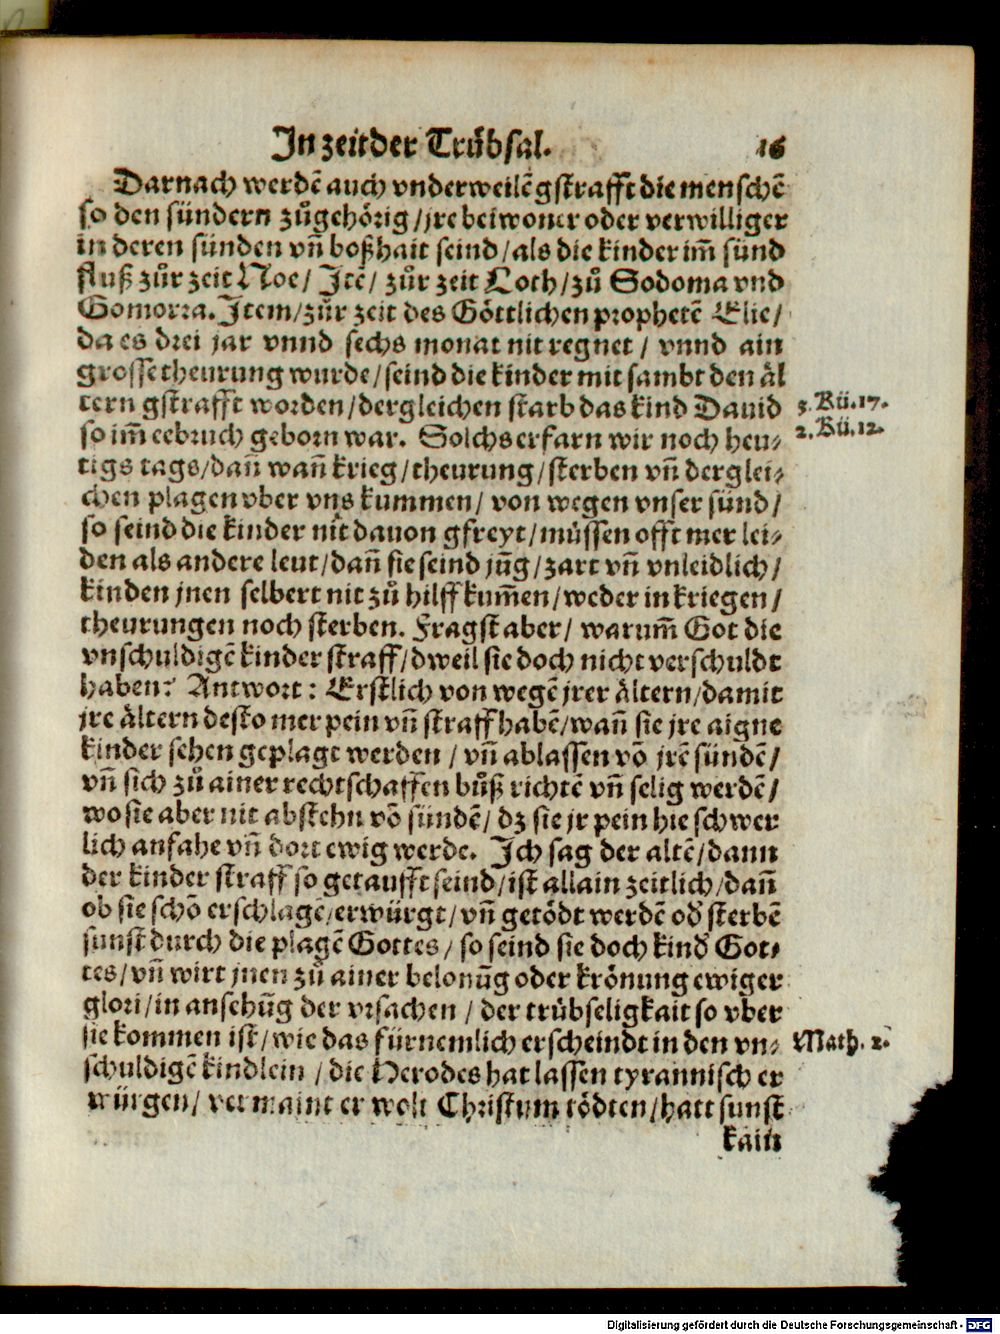 In zeit der Trůbsal. 16
Darnach werdē auch vnderweilē gstrafft die menschē
so den sündern zůgehörig / jre beiwoner oder verwilliger
in deren sünden vn̄ boßhait seind / als die kinder im̄ sünd
fluß zůr zeit Noe / Itē / zůr zeit Loth / zů Sodoma vnd
Gomorra. Item / zůr zeit des Göttlichen prophetē Elie /
da es drei jar vnnd sechs monat nit regnet / vnnd ain
grosse theurung wurde / seind die kinder mit sambt den äl
tern gstrafft worden / dergleichen starb das kind Dauid 3. Kü. 17.
so im̄ eebruch geborn war. Solchs erfarn wir noch heu- 2. Kü. 12.
tigs tags / dan̄ wan̄ krieg / theurung / sterben vn̄ derglei-
chen plagen vber vns kummen / von wegen vnser sünd /
so seind die kinder nit dauon gfreyt / müssen offt mer lei-
den als andere leut / dan̄ sie seind jūg / zart vn̄ vnleidlich /
kinden jnen selbert nit zů hilff kum̄en / weder in kriegen /
theurungen noch sterben. Fragst aber / warum̄ Got die
vnschuldigē kinder straff / dweil sie doch nicht verschuldt
haben? Antwort : Erstlich von wegē jrer ältern / damit
jre ältern desto mer pein vn̄ straff habē / wan̄ sie jre aigne
kinder sehen geplagt werden / vn̄ ablassen vō jrē sündē /
vn̄ sich zů ainer rechtschaffen bůß richtē vn̄ selig werdē /
wo sie aber nit abstehn vō sündē / dz sie jr pein hie schwer
lich anfahe vn̄ dort ewig werde. Ich sag der altē / dann
der kinder straff so getaufft seind / ist allain zeitlich / dan̄
ob sie schō erschlagē / erwürgt / vn̄ getödt werdē od' sterbē
sunst durch die plagē Gottes / so seind sie doch kind' Got-
tes / vn̄ wirt jnen zů ainer belonūg oder krönung ewiger
glori / in ansehūg der vrsachen / der trübseligkait so vber
sie kommen ist / wie das fürnemlich erscheindt in den vn- Math. 2.
schuldigē kindlein / die Herodes hat lassen tyrannisch er
würgen / vermaint er wolt Christum tödten / hatt sunst
kain
Digitalisierung gefördert durch die Deutsche Forschungsgemeinschaft - DFG